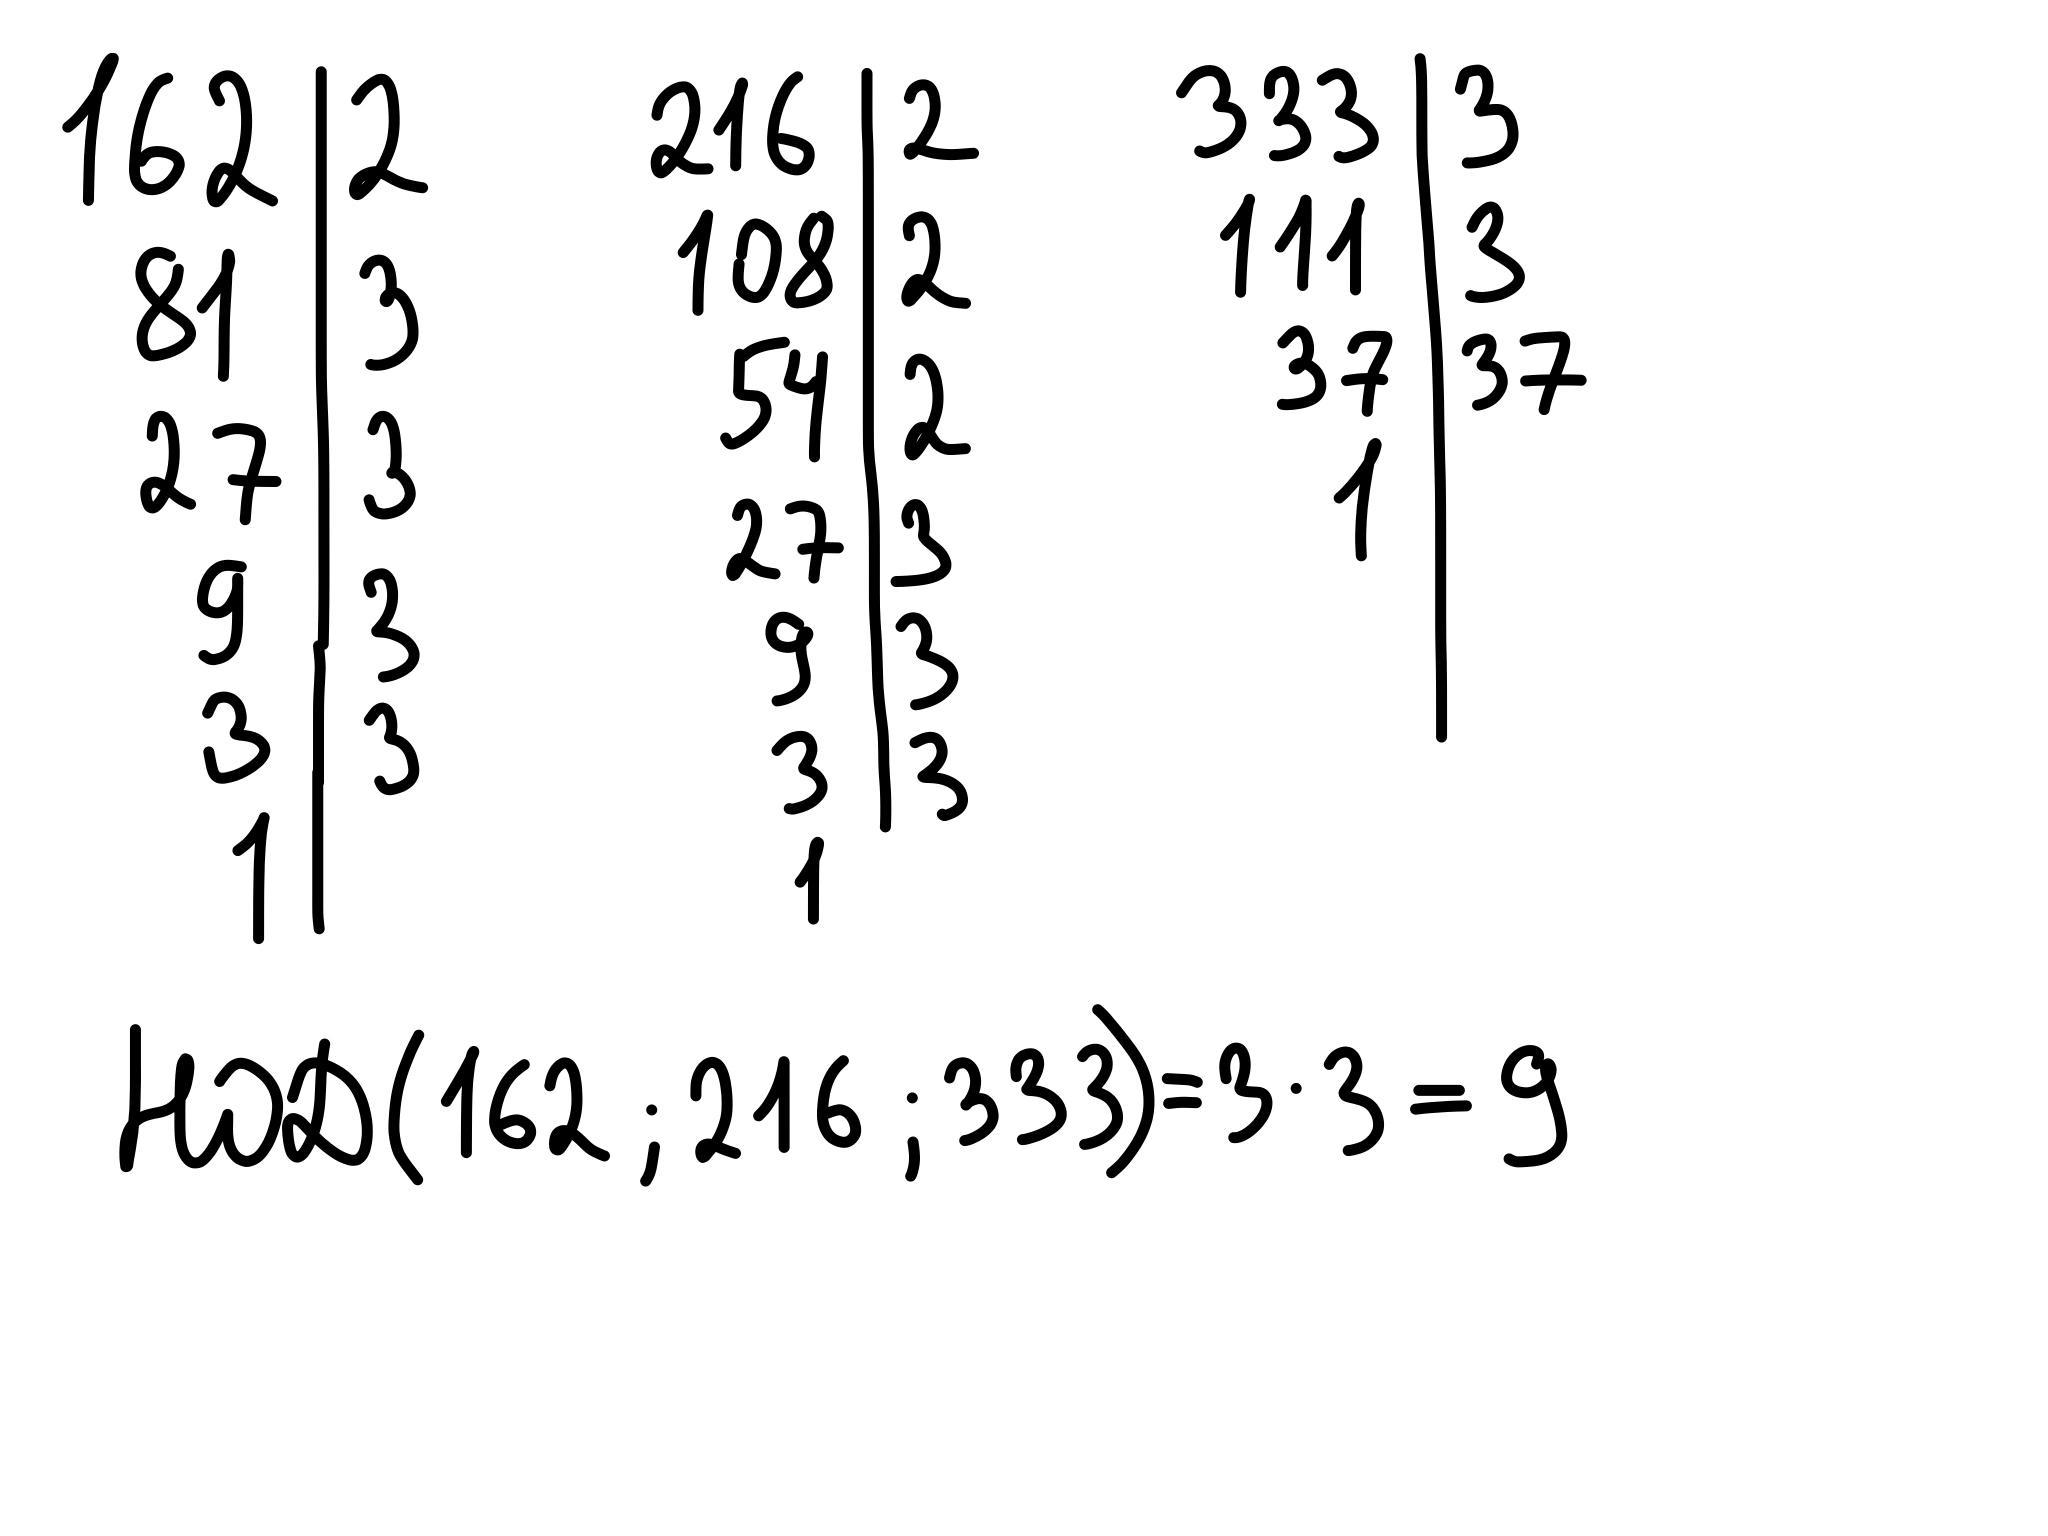 162 | 2
81 | 3
27 | 3
9 | 3
3 | 3
1
216 | 2
108 | 2
54 | 2
27 | 3
9 | 3
3 | 3
1
333 | 3
111 | 3
37 | 37
1
НОД(162;216;333)=3·3=9